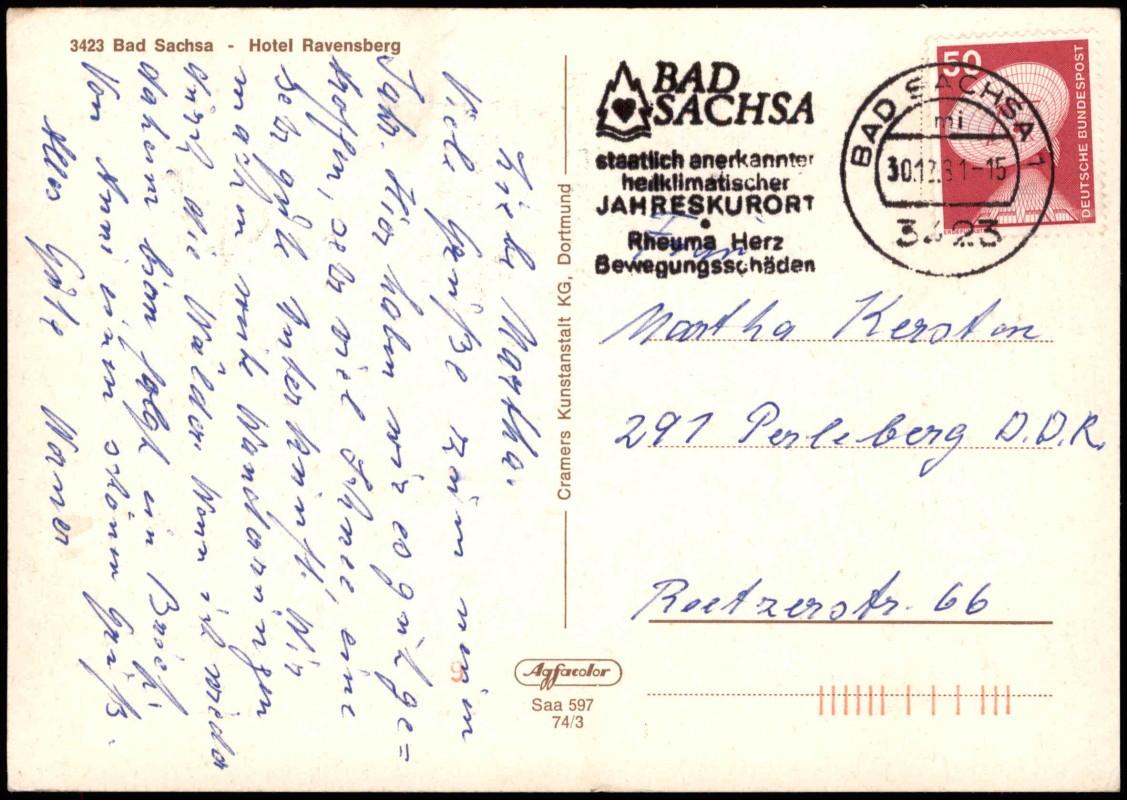 3423 Bad Sachsa - Hotel Ravensberg
Liebe Martha.
Viele Grüße zum neuen
Jahr. Hier haben wir es gut ge=
troffen, sehr viel Schnee, eine
sehr gute Unterkunft. Wir
machen viele Wanderungen
durch die Wälder. Wenn ich wieder
daheim bin folgt ein Brief.
Von Ammi einen schönen Gruß.
Alles Gute
Cramers Kunstanstalt KG, Dortmund
Agfacolor
Saa 597
74/3
9
BAD
SACHSA
staatlich anerkannter
heilklimatischer
JAHRESKURORT
Rheuma Herz
Bewegungsschäden
BAD SACHSA 1
mi
30.12.81-15
3423
50
DEUTSCHE BUNDESPOST
Frau
Martha Kersten
291 Perleberg D.D.R.
Reetzerstr. 66